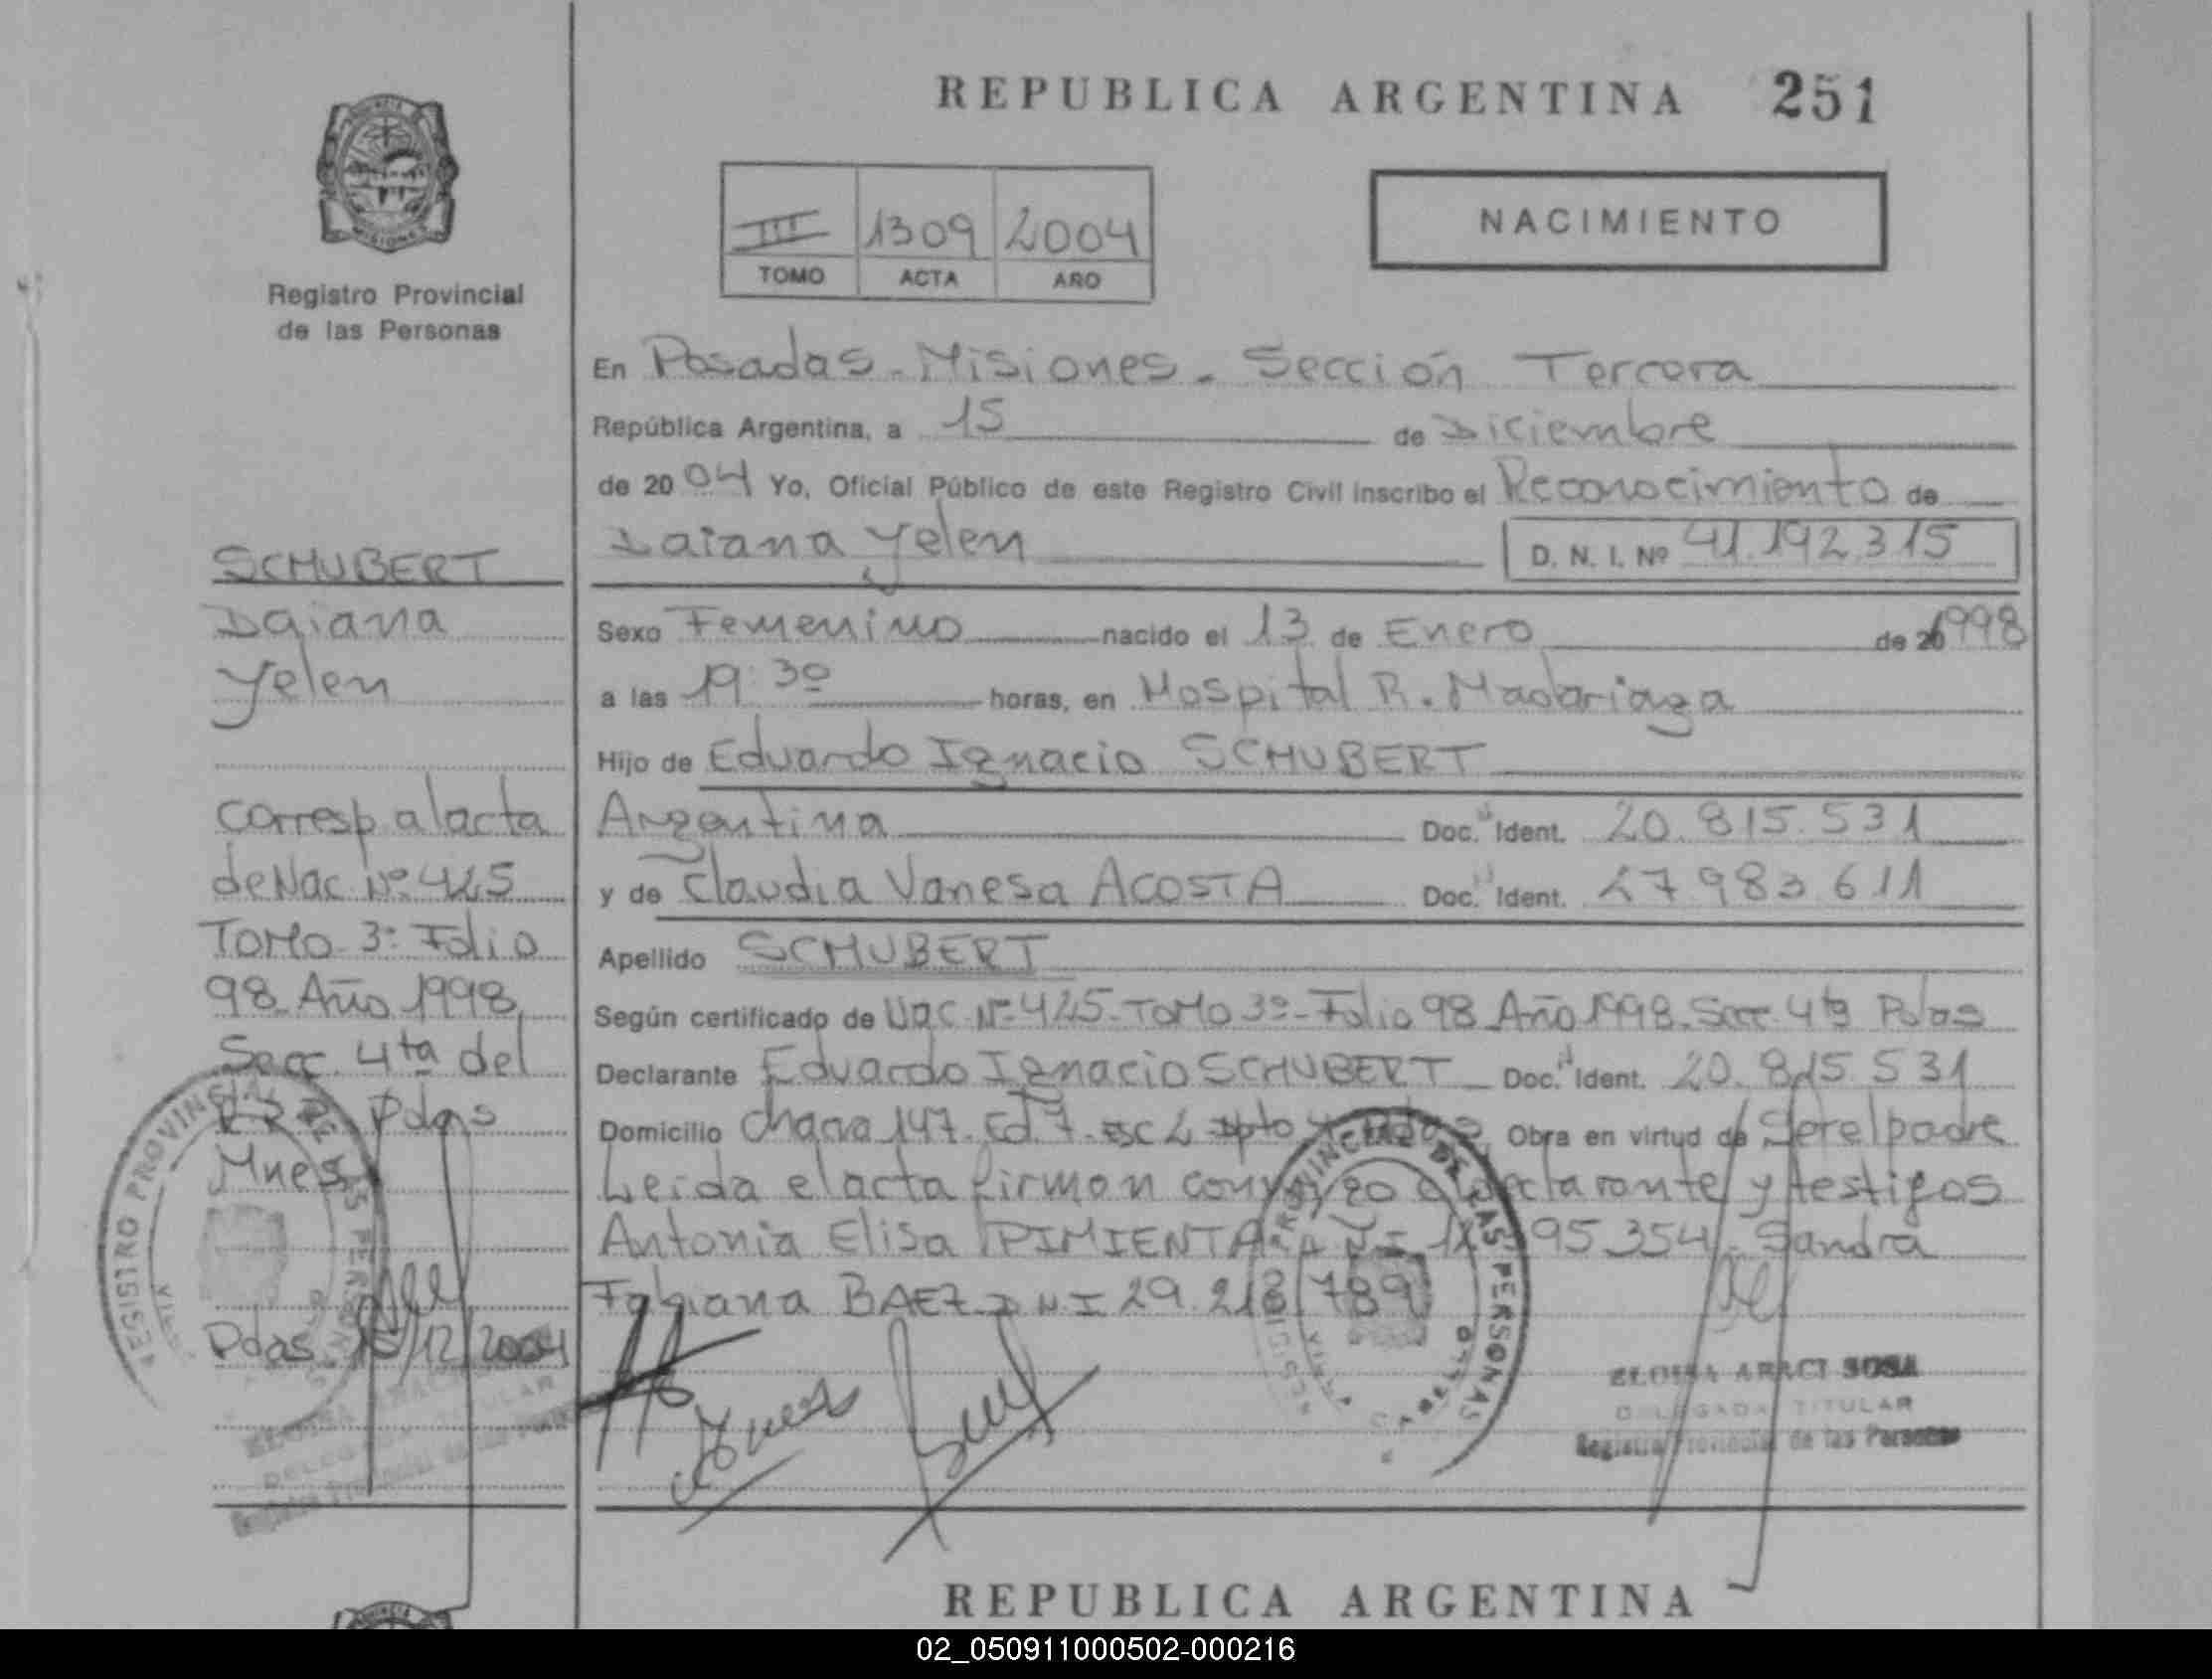 REPUBLICA ARGENTINA 251
III 1309 2004
TOMO ACTA AÑO
NACIMIENTO
Registro Provincial
de las Personas
En Posadas - Misiones - Sección Tercera
República Argentina, a 15 de Diciembre
de 2004 Yo, Oficial Público de este Registro Civil inscribo el Reconocimiento de
Daiana Yelen D. N. I. Nº 41.192.315
Sexo Femenino nacido el 13 de Enero de 1998
a las 19:30 horas, en Hospital R. Madariaga
Hijo de Eduardo Ignacio SCHUBERT
Argentina Doc. Ident. 20.815.531
y de Claudia Vanesa ACOSTA Doc. Ident. 27983611
Apellido SCHUBERT
Según certificado de Nac Nº 425 - TOMO 3º - Folio 98 Año 1998. Secc 4ta Pdas
Declarante Eduardo Ignacio SCHUBERT Doc. Ident. 20.815.531
Domicilio Chacra 147. Ed 7. esc 2 Dpto Obra en virtud de Ser el padre
Leida el acta firman conmigo declarante y testigos
Antonia Elisa PIMIENTA 95354 - Sandra
Fabiana BAEZ DNI 29.218.789
SCHUBERT
Daiana
Yelen
corresp al acta
de Nac Nº 425
TOMO 3º Folio
98 Año 1998
Secc. 4ta del
R.P.P. Pdas
Mnes
Pdas 15/12/2004
REGISTRO PROVINCIAL DE LAS PERSONAS
PROVINCIAL DE LAS PERSONAS
ELOISA ARACI SOSA
DELEGADA TITULAR
Registro Provincial de las Personas
ELOISA ARACI
DELEGADA TITULAR
Registro Provincial de las
REPUBLICA ARGENTINA
02_050911000502-000216